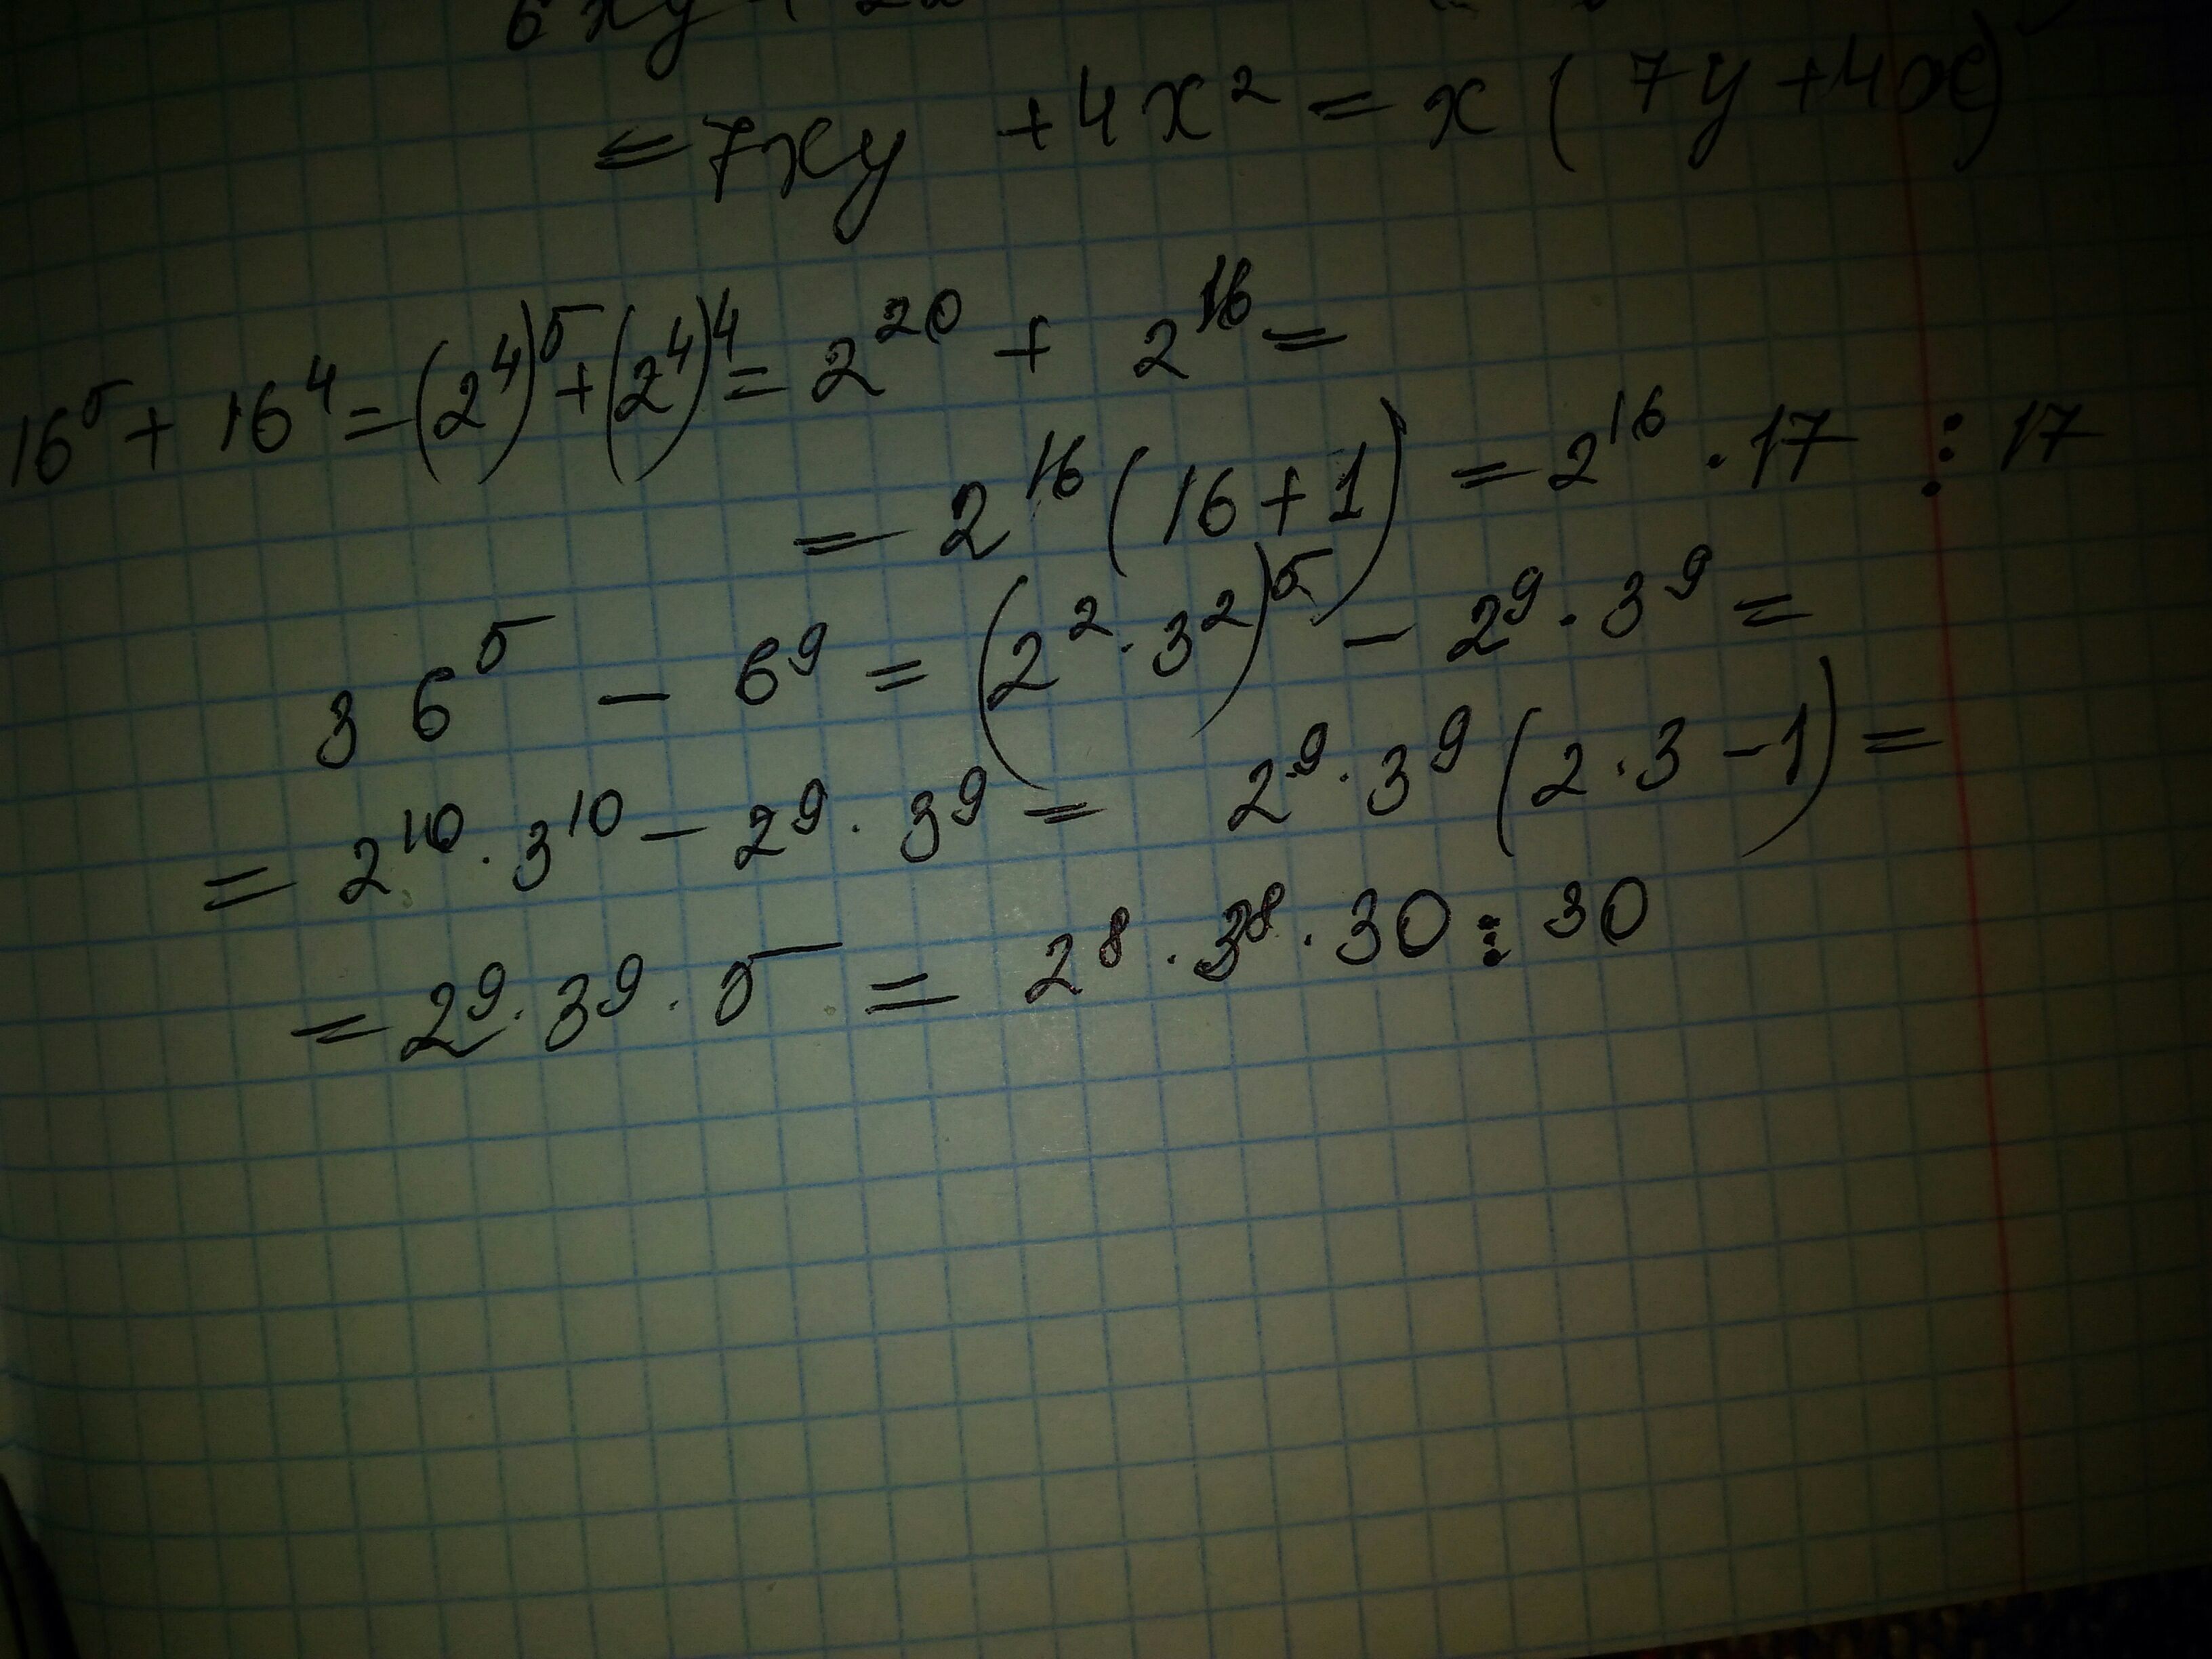 6xy
=7xy +4x² = x(7y+4x)
16⁵ + 16⁴ = (2⁴)⁵ + (2⁴)⁴ = 2²⁰ + 2¹⁶ =
= 2¹⁶(16+1) = 2¹⁶ · 17 ⋮ 17
36⁵ − 6⁹ = (2² · 3²)⁵ − 2⁹ · 3⁹ =
= 2¹⁰ · 3¹⁰ − 2⁹ · 3⁹ = 2⁹ · 3⁹ (2 · 3 − 1) =
= 2⁹ · 3⁹ · 5 = 2⁸ · 3⁸ · 30 ⋮ 30